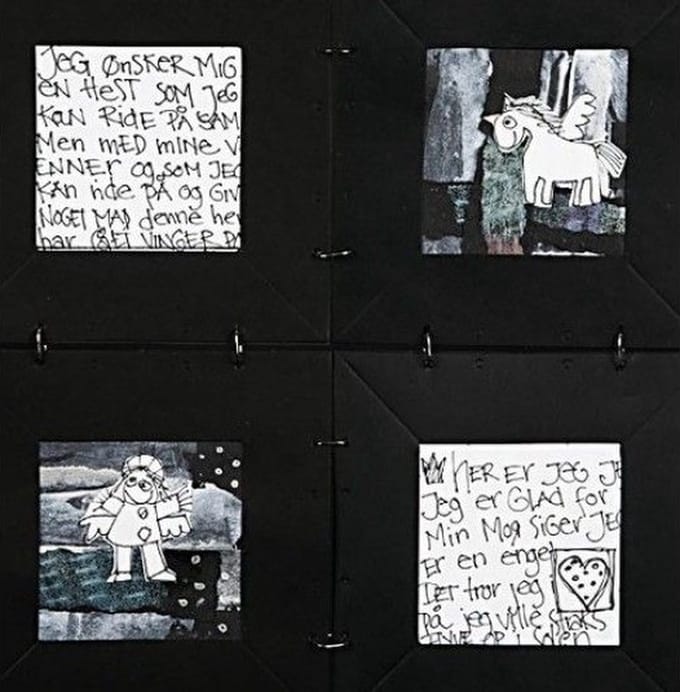 JEG ØNSKER MIG
EN HEST SOM JEG
KAN RIDE PÅ SAM
Men MED mine V
ENNER og SOM JEG
KAN ride PÅ og GIV
NOGET MAD denne he
har VINGER PÅ
HER ER JEG JE
Jeg er GLAD for
Min MOR SIGER JEG
Er en engel
DET tror jeg
på jeg ville straks
OP i Solen